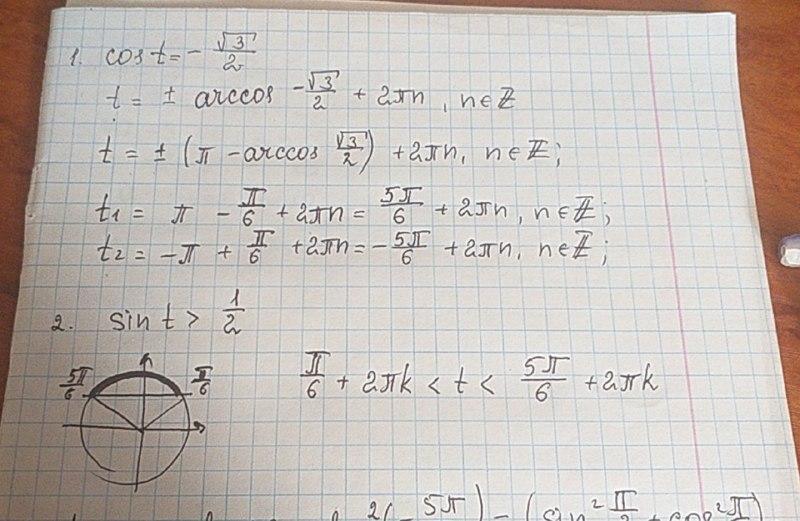 1. cos t = - √3/2
t = ± arccos -√3/2 + 2πn, n∈Z
t = ± (π - arccos √3/2) + 2πn, n∈Z;
t1 = π - π/6 + 2πn = 5π/6 + 2πn, n∈Z;
t2 = -π + π/6 + 2πn = - 5π/6 + 2πn, n∈Z;
2. sin t > 1/2
5π/6 π/6
π/6 + 2πk < t < 5π/6 + 2πk
2(- 5π ) - (sin² π/2 + cos² π